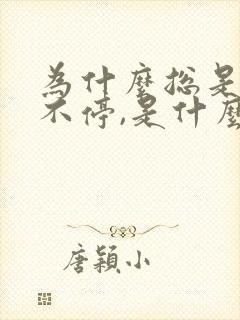 為什麼總是
不停,是什麼
唐穎小